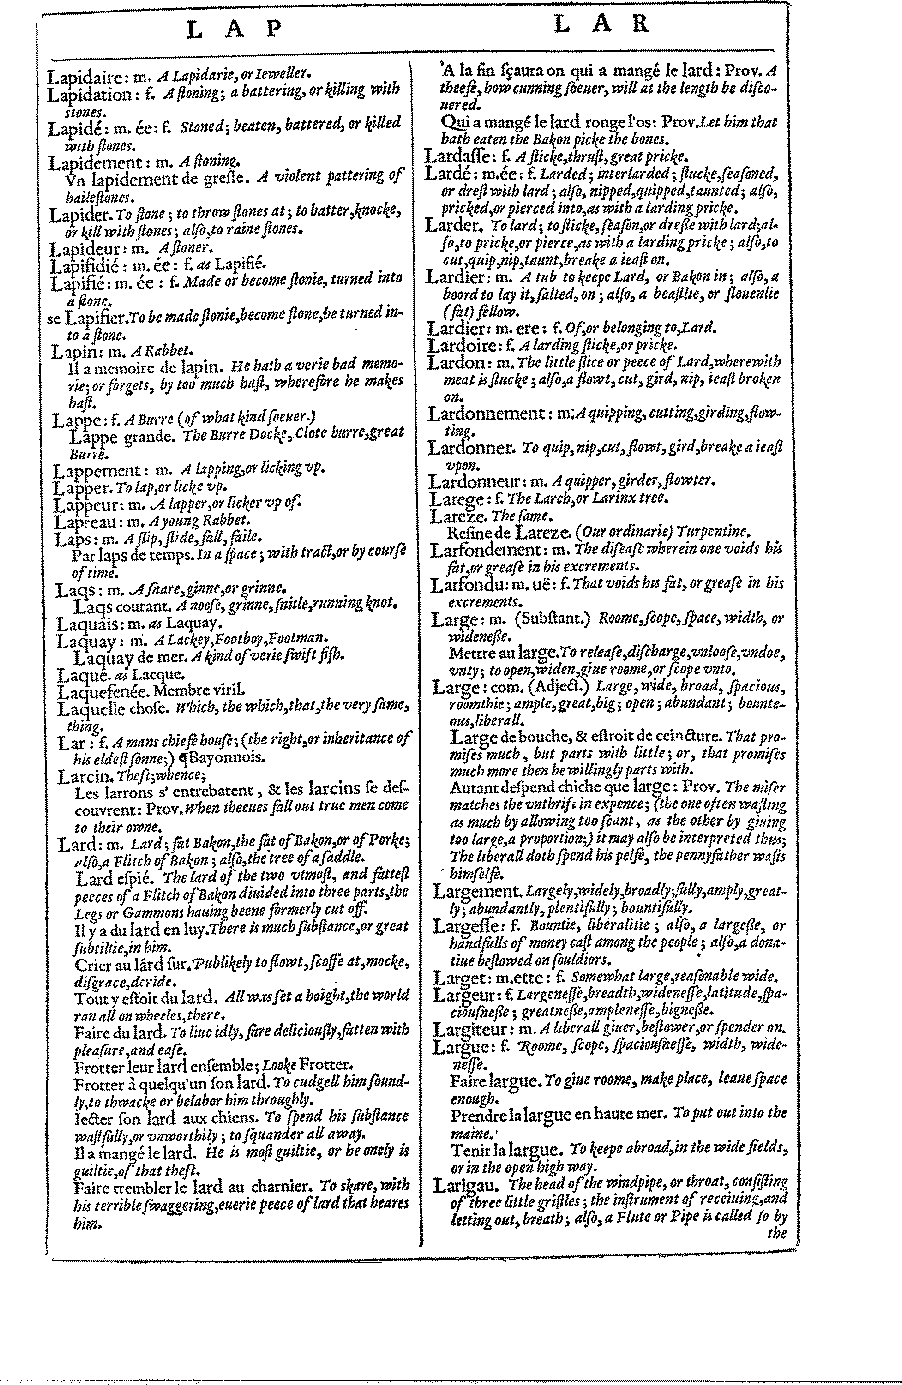 L A P
Lapidaire: m. A Lapidarie, or Ieweller.
Lapidation: f. A ſtoning; a battering, or killing with
ſtones.
Lapidé: m. ée: f. Stoned; beaten, battered, or killed
with ſtones.
Lapidement: m. A ſtoning.
Vn lapidement de greſle. A violent pattering of
haileſtones.
Lapider. To ſtone; to throw ſtones at; to batter, knocke,
or kill with ſtones; alſo, to raine ſtones.
Lapideur: m. A ſtoner.
Lapifidié: m. ée: f. as Lapifié.
Lapifié: m. ée: f. Made or become ſtonie, turned into
a ſtone.
se Lapifier. To be made ſtonie, become ſtone, be turned in-
to a ſtone.
Lapin: m. A Rabbet.
Il a memoire de lapin. He hath a verie bad memo-
rie; or forgets, by too much haſt, wherefore he makes
haſt.
Lappe: f. A Burre (of what kind ſoeuer.)
Lappe grande. The Burre Docke, Clote burre, great
Burre.
Lappement: m. A lapping, or licking vp.
Lapper. To lap, or licke vp.
Lappeur: m. A lapper, or licker vp of.
Lapreau: m. A young Rabbet.
Laps: m. A ſlip, ſlide, fall, faile.
Par laps de temps. In a ſpace; with tract, or by courſe
of time.
Laqs: m. A ſnare, ginne, or grinne.
Laqs courant. A nooſe, grinne, ſnitle, running knot.
Laquais: m. as Laquay.
Laquay: m. A Lackey, Footboy, Footman.
Laquay de mer. A kind of verie ſwift fiſh.
Laque. as Lacque.
Laquefenée. Membre viril.
Laquelle choſe. Which, the which, that, the very ſame,
thing.
Lar: f. A mans chiefe houſe; (the right, or inheritance of
his eldeſt ſonne;) ¶Bayonnois.
Larcin. Theft; whence;
Les larrons s' entrebatent, & les larcins ſe deſ-
couvrent: Prov. When theeues fall out true men come
to their owne.
Lard: m. Lard; fat Bakon, the fat of Bakon, or of Porke;
alſo, a Flitch of Bakon; alſo, the tree of a ſaddle.
Lard eſpié. The lard of the two vtmoſt, and fatteſt
peeces of a Flitch of Bakon diuided into three parts, the
Legs or Gammons hauing beene formerly cut off.
Il y a du lard en luy. There is much ſubſtance, or great
ſubtiltie, in him.
Crier au lard ſur. Publikely to flowt, ſcoffe at, mocke,
diſgrace, deride.
Tout y eſtoit du lard. All was ſet a hoight, the world
ran all on wheeles, there.
Faire du lard. To liue idly, fare deliciouſly, fatten with
pleaſure, and eaſe.
Frotter leur lard enſemble; Looke Frotter.
Frotter à quelqu'un ſon lard. To cudgell him ſound-
ly, to thwacke or belabor him throughly.
Iecter ſon lard aux chiens. To ſpend his ſubſtance
waſtfully, or vnworthily; to ſquander all away.
Il a mangé le lard. He is moſt guiltie, or he onely is
guiltie, of that theft.
Faire trembler le lard au charnier. To skare, with
his terrible ſwaggering, euerie peece of lard that heares
him.
L A R
A la fin ſçaura on qui a mangé le lard: Prov. A
theefe, how cunning ſoeuer, will at the length be diſco-
uered.
Qui a mangé le lard ronge l'os: Prov. Let him that
hath eaten the Bakon picke the bones.
Lardaſſe: f. A ſticke, thruſt, great pricke.
Lardé: m. ée: f. Larded; interlarded; ſtucke, ſeaſoned,
or dreſt with lard; alſo, nipped, quipped, taunted; alſo,
pricked, or pierced into, as with a larding pricke.
Larder. To lard; to ſticke, ſeaſon, or dreſſe with lard; al-
ſo, to pricke, or pierce, as with a larding pricke; alſo, to
cut, quip, nip, taunt, breake a ieaſt on.
Lardier: m. A tub to keepe Lard, or Bakon in; alſo, a
boord to lay it, ſalted, on; alſo, a beaſtlie, or ſlouenlie
(fat) fellow.
Lardier: m. ere: f. Of, or belonging to, Lard.
Lardoire: f. A larding ſticke, or pricke.
Lardon: m. The little ſlice or peece of Lard, wherewith
meat is ſtucke; alſo, a flowt, cut, gird, nip, ieaſt broken
on.
Lardonnement: m. A quipping, cutting, girding, flow-
ting.
Lardonner. To quip, nip, cut, flowt, gird, breake a ieaſt
vpon.
Lardonneur: m. A quipper, girder, flowter.
Larege: f. The Larch, or Larinx tree.
Lareze. The ſame.
Reſine de Lareze. (Our ordinarie) Turpentine.
Larfondement: m. The diſeaſe wherein one voids his
fat, or greaſe in his excrements.
Larfondu: m. uë: f. That voids his fat, or greaſe in his
excrements.
Large: m. (Subſtant.) Roome, ſcope, ſpace, width, or
wideneſſe.
Mettre au large. To releaſe, diſcharge, vnlooſe, vndoe,
vnty; to open, widen, giue roome, or ſcope vnto.
Large: com. (Adject.) Large, wide, broad, ſpacious,
roomthie; ample, great, big; open; abundant; bounte-
ous, liberall.
Large de bouche, & eſtroit de ceincture. That pro-
miſes much, but parts with little; or, that promiſes
much more then he willingly parts with.
Autant deſpend chiche que large: Prov. The miſer
matches the vnthrift in expence; (the one often waſting
as much by allowing too ſcant, as the other by giuing
too large, a proportion;) it may alſo be interpreted thus;
The liberall doth ſpend his pelfe, the pennyfather waſts
himſelfe.
Largement. Largely, widely, broadly, fully, amply, great-
ly; abundantly, plentifully; bountifully.
Largeſſe: f. Bountie, liberalitie; alſo, a largeſſe, or
handfulls of money caſt among the people; alſo, a dona-
tiue beſtowed on ſouldiors.
Larget: m. ette: f. Somewhat large, reaſonable wide.
Largeur: f. Largeneſſe, breadth, wideneſſe, latitude, ſpa-
ciouſneſſe; greatneſſe, ampleneſſe, bigneſſe.
Largiteur: m. A liberall giuer, beſtower, or ſpender on.
Largue: f. Roome, ſcope, ſpaciouſneſſe, width, wide-
neſſe.
Faire largue. To giue roome, make place, leaue ſpace
enough.
Prendre la largue en haute mer. To put out into the
maine.
Tenir la largue. To keepe abroad, in the wide fields,
or in the open high way.
Larigau. The head of the windpipe, or throat, conſiſting
of three little griſtles; the inſtrument of receiuing, and
letting out, breath; alſo, a Flute or Pipe is called ſo by
the